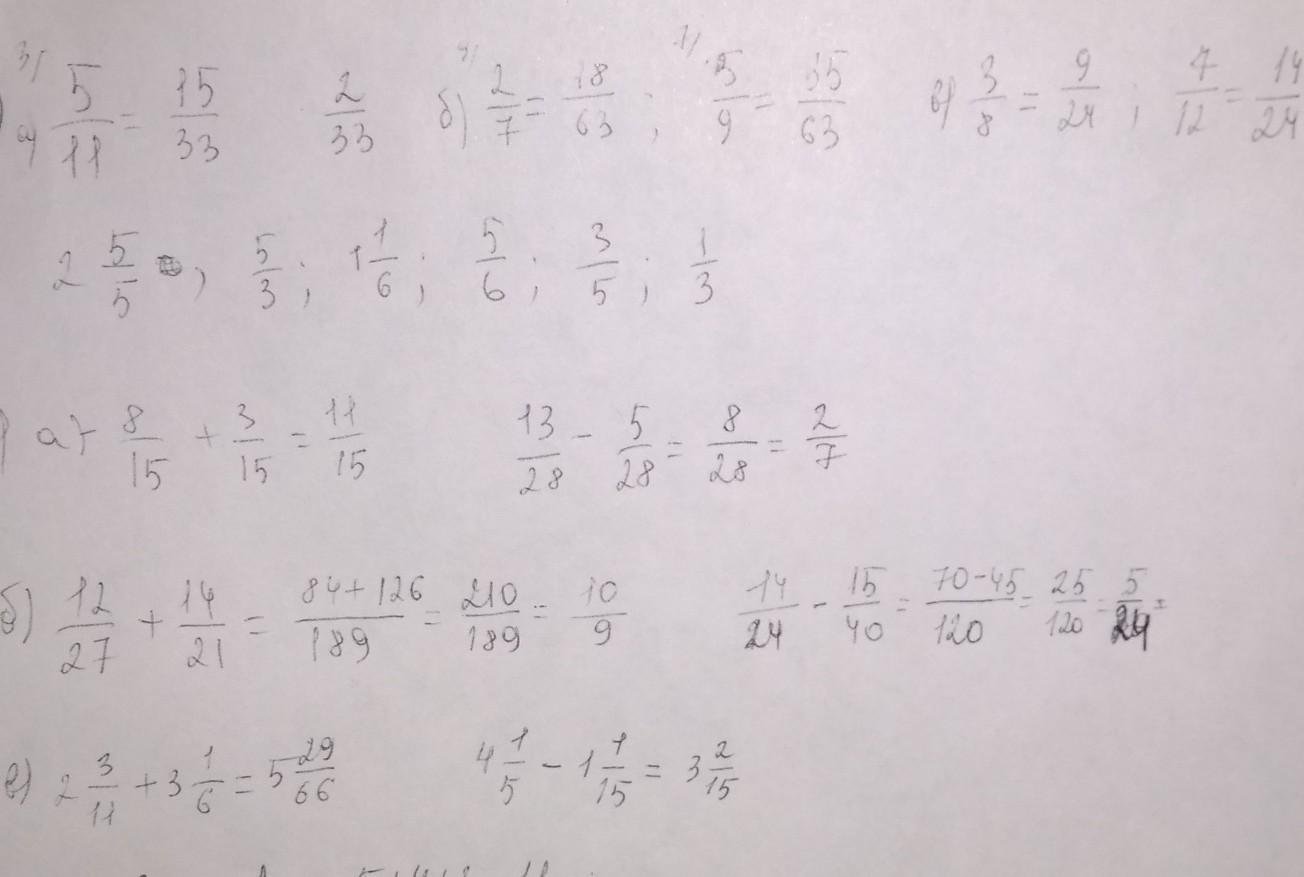 а) 5/11 = 15/33 2/33 б) 2/7 = 18/63 ; 5/9 = 35/63 в) 3/8 = 9/24 ; 7/12 = 14/24
2 5/5 , 5/3 ; 1 1/6 ; 5/6 ; 3/5 ; 1/3
а) 8/15 + 3/15 = 11/15 13/28 - 5/28 = 8/28 = 2/7
б) 12/27 + 14/21 = 84+126/189 = 210/189 = 10/9 14/24 - 15/40 = 70-45/120 = 25/120 = 5/24 =
в) 2 3/11 + 3 1/6 = 5 29/66 4 1/5 - 1 1/15 = 3 2/15